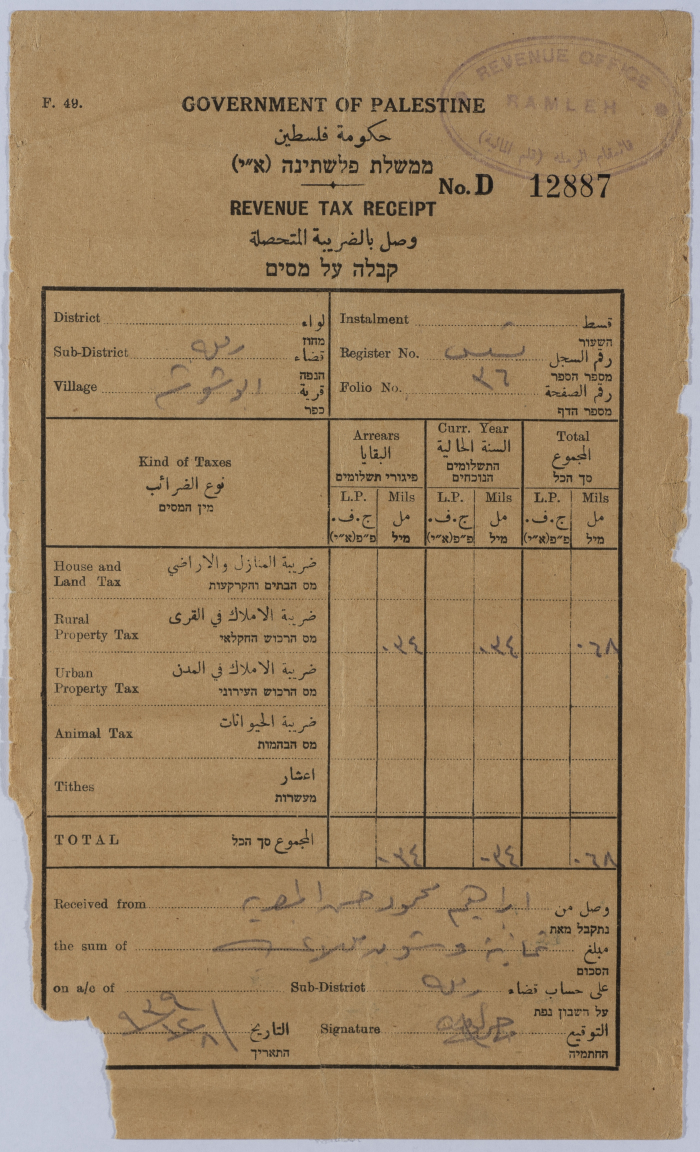 REVENUE OFFICE
RAMLEH
F. 49.
GOVERNMENT OF PALESTINE
حكومة فلسطين
ממשלת פלשתינה (א״י)
No. D 12887
REVENUE TAX RECEIPT
وصل بالضريبة المتحصلة
קבלה על מסים
District لواء
מחוז
Sub-District رمله قضاء
הנפה
Village قرية
כפר
Instalment قسط
השעור
Register No. رقم السجل
מספר הספר
Folio No. ٣٦ رقم الصفحة
מספר הדף
Kind of Taxes
نوع الضرائب
מין המסים
Arrears
البقايا
פיגורי תשלומים
Curr. Year
السنة الحالية
התשלומים
הנוכחים
Total
المجموع
סך הכל
L.P. Mils L.P. Mils L.P. Mils
ج.ف. مل ج.ف. مل ج.ف. مل
פ״פ(א״י) מיל פ״פ(א״י) מיל פ״פ(א״י) מיל
House and ضريبة المنازل والاراضي
Land Tax מס הבתים והקרקעות
Rural ضريبة الاملاك في القرى
Property Tax מס הרכוש החקלאי
٠٣٤ ٠٣٤ ٠٦٨
Urban ضريبة الاملاك في المدن
Property Tax מס הרכוש העירוני
Animal Tax ضريبة الحيوانات
מס הבהמות
Tithes اعشار
מעשרות
TOTAL المجموع סך הכל
٠٣٤ ٠٣٤ ٠٦٨
Received from ابراهيم محمود حسن وصل من
נתקבל מאת
the sum of ثمانية وستون مبلغ
הסכום
on a/c of Sub-District رمله على حساب قضاء
על חשבון נפת
التاريخ Signature التوقيع
התאריך החתמיה